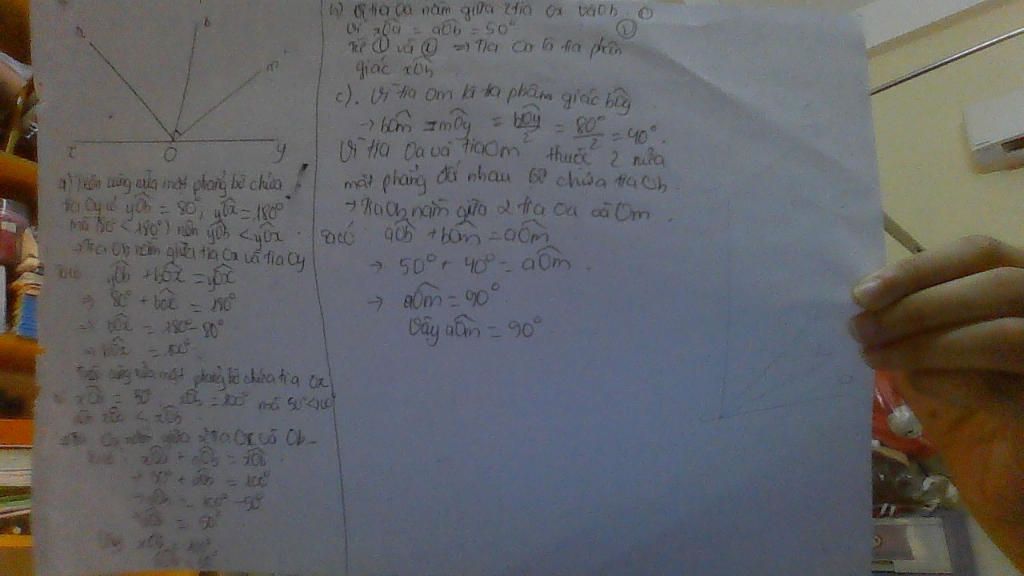 a
b
m
x
O
y
a) Trên cùng nửa mặt phẳng bờ chứa
tia Oy có yÔb = 80°, yÔx = 180°
mà 80° < 180°) nên yÔb < yÔx
→ Tia Ob nằm giữa tia Ox và tia Oy
yÔb + bÔx = yÔx
→ 80° + bÔx = 180°
→ bÔx = 180° - 80°
→ bÔx = 100°
Trên cùng nửa mặt phẳng bờ chứa tia Ox
có xÔa = 50° xÔb = 100° mà 50° < 100°
nên xÔa < xÔb
→ Tia Oa nằm giữa 2 tia Ox và Ob
xÔa + aÔb = xÔb
→ 50° + aÔb = 100°
→ aÔb = 100° - 50°
aÔb = 50°
Vậy xÔb = 100°
b) Vì tia Oa nằm giữa 2 tia Ox và Ob. ①
Vì xÔa = aÔb = 50° ②
Từ ① và ② => tia Oa là tia phân
giác xÔb
c). Vì tia Om là tia phâm giác bÔy
→ bÔm = mÔy = bÔy/2 = 80°/2 = 40°.
Vì tia Oa và tia Om thuộc 2 nửa
mặt phẳng đối nhau bờ chứa tia Ob.
→ Tia Ob nằm giữa 2 tia Oa và Om.
Ta có aÔb + bÔm = aÔm
→ 50° + 40° = aÔm.
→ aÔm = 90°
Vậy aÔm = 90°